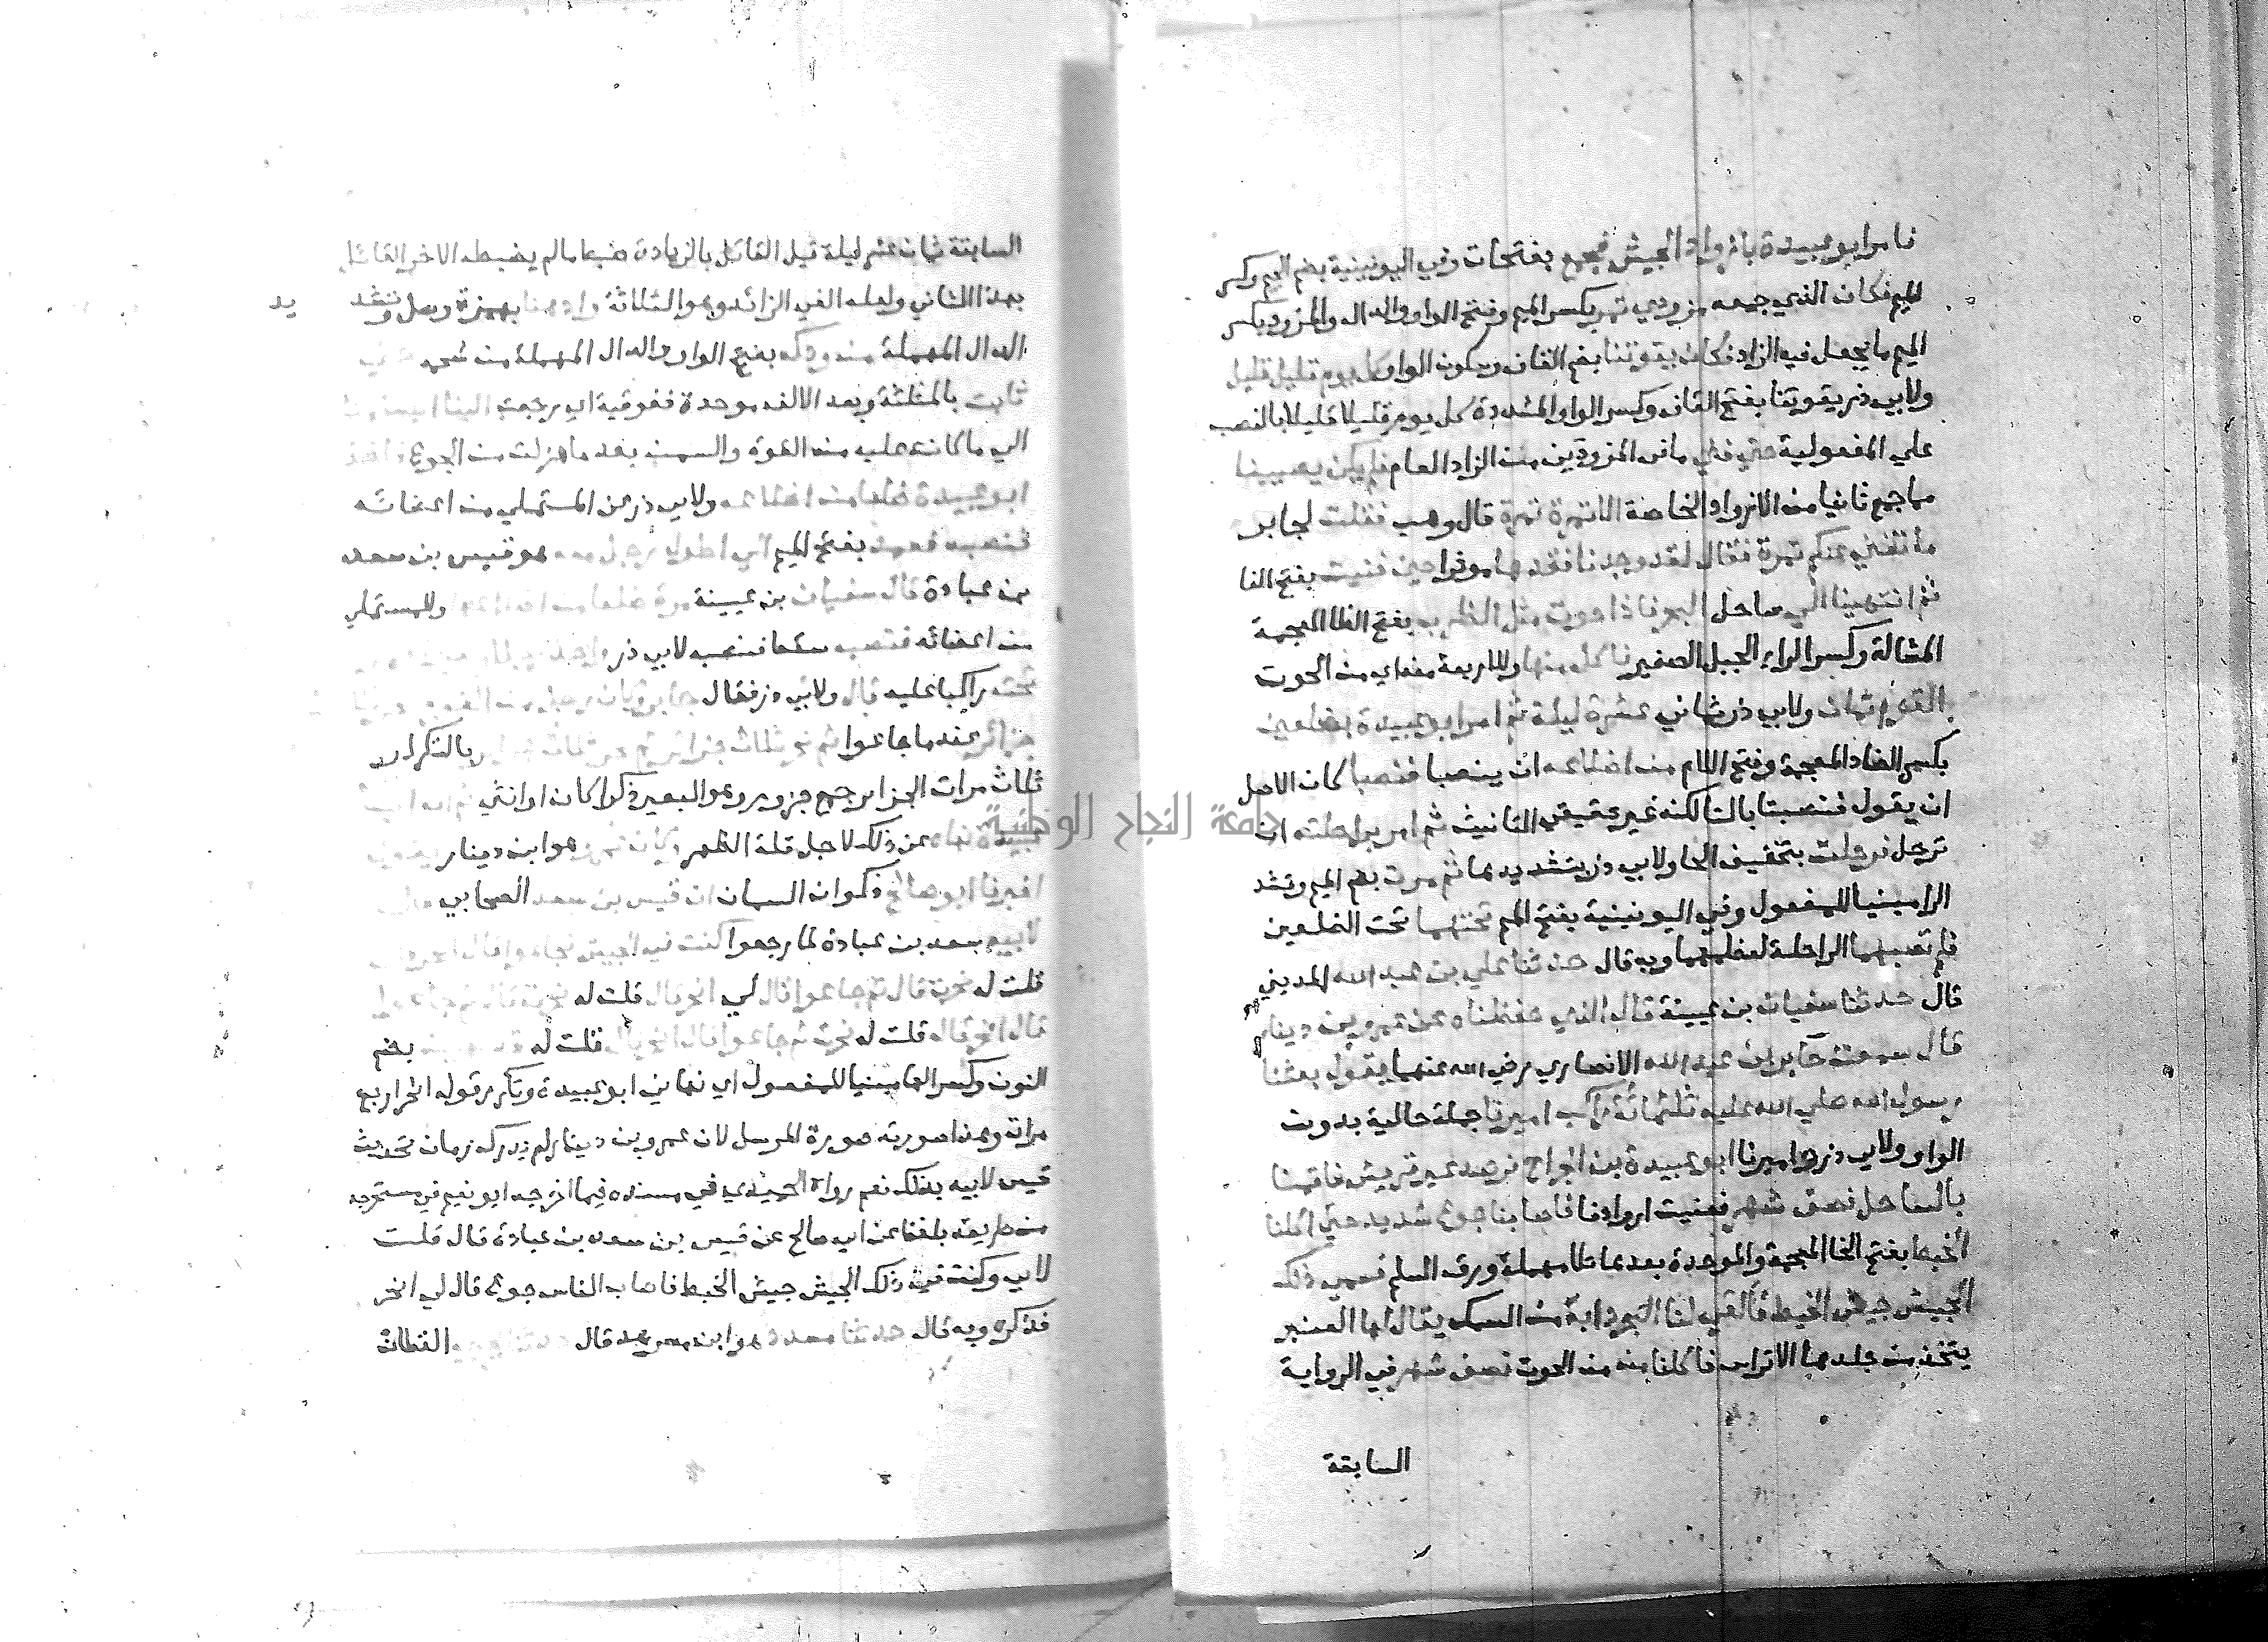 فامر ابو عبيدة بازواد الجيش فجمع بفتحات وفي اليونينية بضم الجيم وكسر
الميم فكان الذي جمعه مزودي تمر بكسر الميم وفتح الواو والدال والمزود بكسر
الميم ما يجعل فيه الزاد فكان يقوتنا بضم القاف وسكون الواو كل يوم قليل قليل
ولابي ذر يقوتنا بفتح القاف وكسر الواو المشددة كل يوم قليلا قليلا بالنصب
علي المفعولية حتي فني ما في المزودين من الزاد العام فلم يكن يصيبنا
مما جمع ثانيا من الازواد الخاصة الا تمرة تمرة قال وهب فقلت لجابر
ما تغني عنكم تمرة فقال لقد وجدنا فقدها موثرا حين فنيت بفتح الفا
ثم انتهينا الي ساحل البحر فاذا حوت مثل الظرب بفتح الظا المعجمة
المشالة وكسر الراء الجبل الصغير فاكل منها وللاربعة منه اي من الحوت
القوم ثمان ولابي ذر ثماني عشرة ليلة ثم امر ابو عبيدة بضلعين
بكسر الضاد المعجمة وفتح اللام من اضلاعه ان ينصبا فنصبا كان الاصل
ان يقول فنصبتا بالتا لكنه غير حقيقي التانيث ثم امر براحلته ان
ترحل فرحلت بتخفيف الحا ولابي ذر بتشديدها ثم مرت بضم الميم وتشد
الرا مبنيا للمفعول وفي اليونينية بفتح الميم تحتهما تحت الضلعين
فلم تصبهما الراحلة لعظمهما وبه قال حدثنا علي بن عبد الله المديني
قال حدثنا سفيان بن عيينة قال الذي حفظناه من عمرو بن دينار
قال سمعت جابر ابن عبد الله الانصاري رضي الله عنهما يقول بعثنا
رسول الله صلي الله عليه ثلثمائة راكب اميرنا جملة حالية بدون
الواو ولابي ذر واميرنا ابو عبيدة بن الجراح نرصد عير قريش فاقمنا
بالساحل نصف شهر ففنيت ازوادنا فاصابنا جوع شديد حتي اكلنا
الخبط بفتح الخا المعجمة والموحدة بعدها طا مهملة ورق السلم فسمي ذلك
الجيش جيش الخبط فالقي لنا البحر دابة من السمك يقال لها العنبر
يتخذ من جلدها الاتراس فاكلنا منه من الحوت نصف شهر في الرواية
السابقة
السابقة ثمان عشر ليلة قيل القائل بالزيادة ضبط ما لم يضبطه الاخر القائل
بهذا الثاني ولعله الغي الزائد وهو الثلاثة وادهنا بهمزة وصل وتشد يد
الدال المهملة من ودكه بفتح الواو والدال المهملة من شحمه حتي
ثابت بالمثلثة وبعد الالف موحدة ففوقية اي رجعت الينا اجسامنا
الي ما كانت عليه من القوة والسمن بعد ما هزلت من الجوع فاخذ
ابو عبيدة ضلعا من اضلاعه ولابي ذر عن المستملي من اعضائه
فنصبه فعمد بفتح الميم الي اطول رجل معه هو قيس بن سعد
بن عبادة قال سفيان بن عيينة مرة ضلعا من اضلاعه وللمستملي
من اعضائه فنصبه سقط فنصبه لابي ذر واخذ
تحته راكبا عليه قال ولابي ذر فقال جابر وكان رجل من القوم
جزائر عند ما جاعوا ثم نحر ثلاث جزائر ثم نحر ثلاث جزائر بالتكرار
ثلاث مرات الجزاير جمع جزور وهو البعير ذكرا كان او انثي ثم ان ابا
عبيدة نهاه عن ذلك لاجل قلة الظهر وكان عمرو هو ابن دينار يقول
اخبرنا ابو صالح ذكوان السمان ان قيس بن سعد الصحابي قال
لابيه سعد بن عبادة لما رجعوا كنت في الجيش فجاعوا قال انحر
قلت له نحرت قال ثم جاعوا قال لي انحر قال قلت له نحرت
قال انحر قال قلت له نحرت ثم جاعوا قال انحر قال قلت له بضم
النون وكسر الها مبنيا للمفعول اي نهاني ابو عبيدة وتكرر قوله انحر اربع
مرات وهذا صورته صورة المرسل لان عمرو بن دينار لم يدرك زمان تحديث
قيس لابيه بذلك نعم رواه الحميدي في مسنده فيما اخرجه ابو نعيم في مستخرجه
من طريقه بلفظ عن ابي صالح عن قيس بن سعد بن عبادة قال قلت
لابي وكنت في ذلك الجيش جيش الخبط فاصاب الناس جوع قال لي انحر
فذكره وبه قال حدثنا مسدد هو ابن مسرهد قال حدثنا يحيي القطان
جامعة النجاح الوطنية